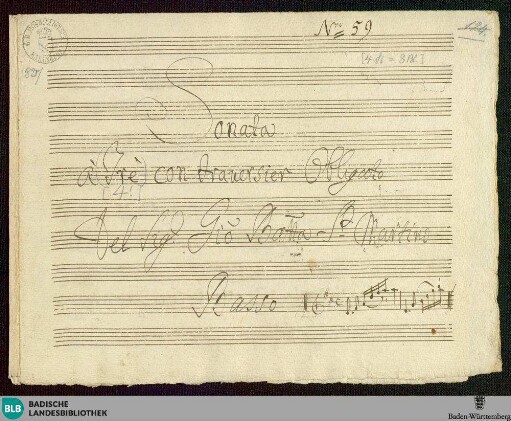 Nro 59
124
[4 St = 8 Bl.]
837
Sonata
à Trè con traversier Obligato
[4]
Del Sigr Gio Batta St Martino
Basso
BLB BADISCHE
LANDESBIBLIOTHEK
Baden-Württemberg